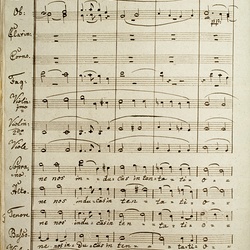 Ob:
Clarin:
Corno.
Fag:
Violin
Violin
Viole
Sopra
ne nos in-du-cas in ten-ta-ti-o
Alto.
ne nos indu-cas in ten-ta-ti-o
Tenore
ne nos indu-cas in ten-ta-ti-o
Basso
ne nos in-du-cas in ten-tatio